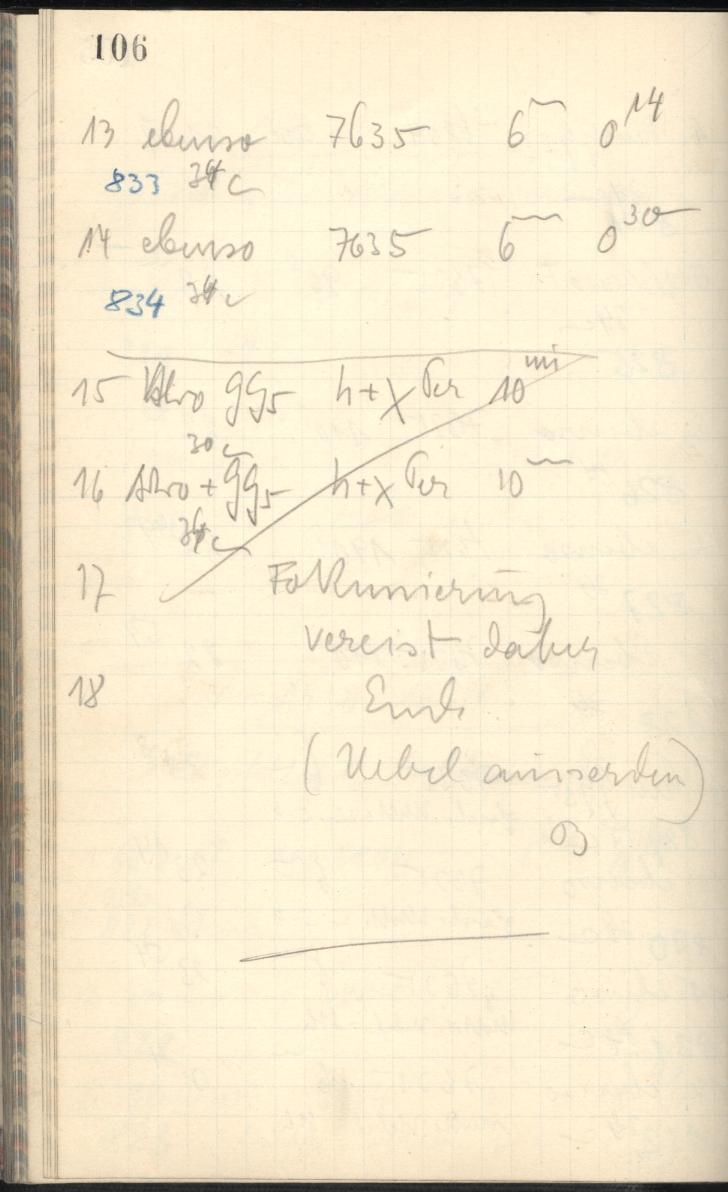 106
13 ebenso 7635 6m 0 14
833 34 c
14 ebenso 7635 6m 0 30
834 34 c
15 Astro GG5 h+χ Per 10 mi
30 c
16 Astro + GG5 h+χ Per 10m
34 c
17 Fokussierung
vereist daher
18 Ende
(Nebel ausserdem)